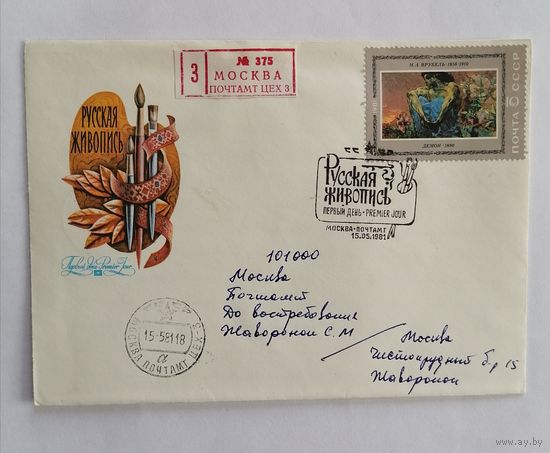 № 375
З МОСКВА
ПОЧТАМТ ЦЕХ 3
М.А. ВРУБЕЛЬ · 1856-1910
ДЕМОН · 1890
ПОЧТА СССР
РУССКАЯ
ЖИВОПИСЬ
Русская
живопись
ПЕРВЫЙ ДЕНЬ · PREMIER JOUR
МОСКВА-ПОЧТАМТ
15.05.1981
Первый день Premier Jour
101000
Москва
Почтамт
До востребования
Жаворонок С. М
Москва
Чистопрудный б, р 15
Жаворонок
15-581118
МОСКВА ПОЧТАМТ ЦЕХ-3
а
www.ay.by